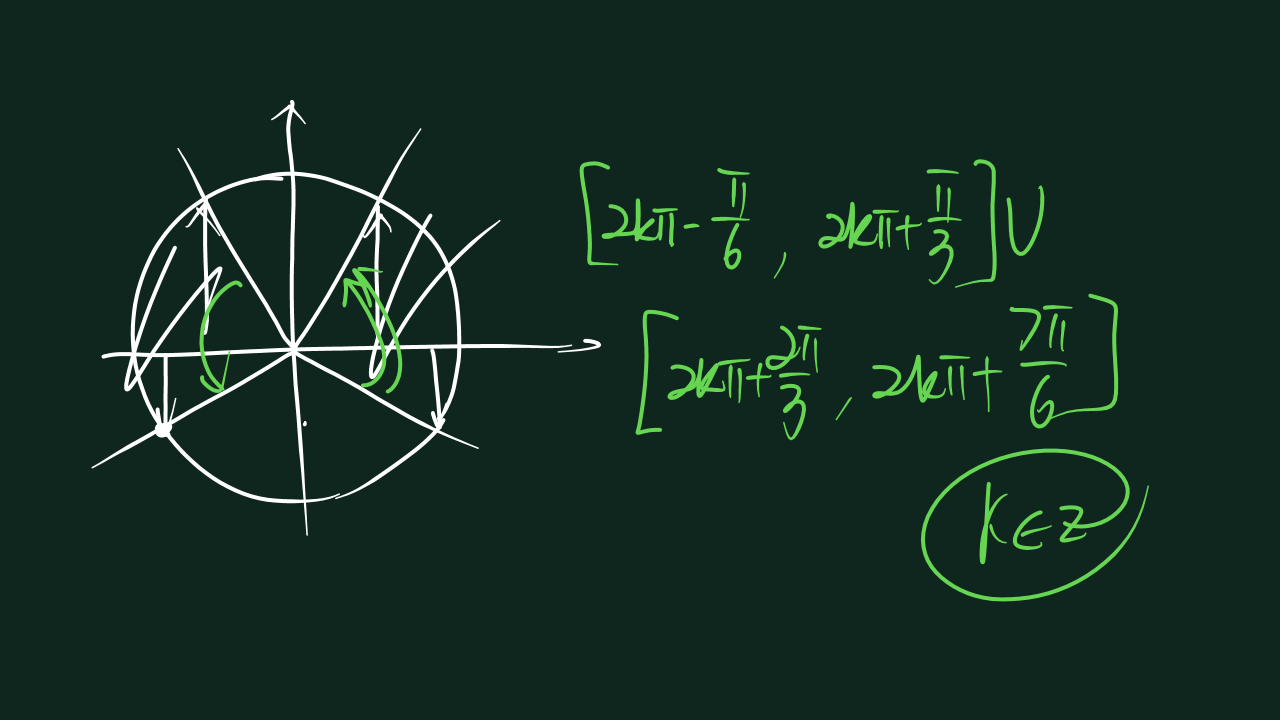 [2kπ - π/6 , 2kπ + π/3] ∪
[2kπ + 2π/3 , 2kπ + 7π/6]
k∈z